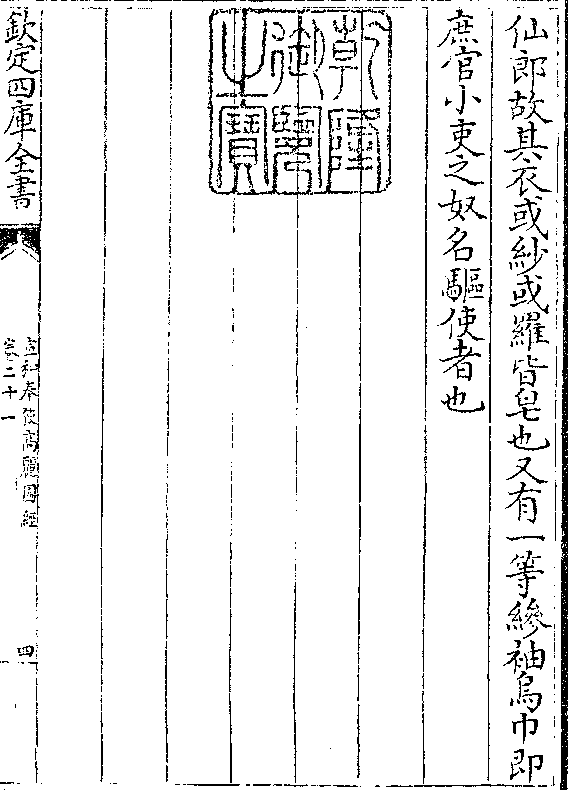 仙郎故其衣或紗或羅皆皂也又有一等縿袖烏巾即
庶官小吏之奴名驅使者也
乾隆御覽之寶
欽定四庫全書
宣和奉使高麗圖經
卷二十一
四